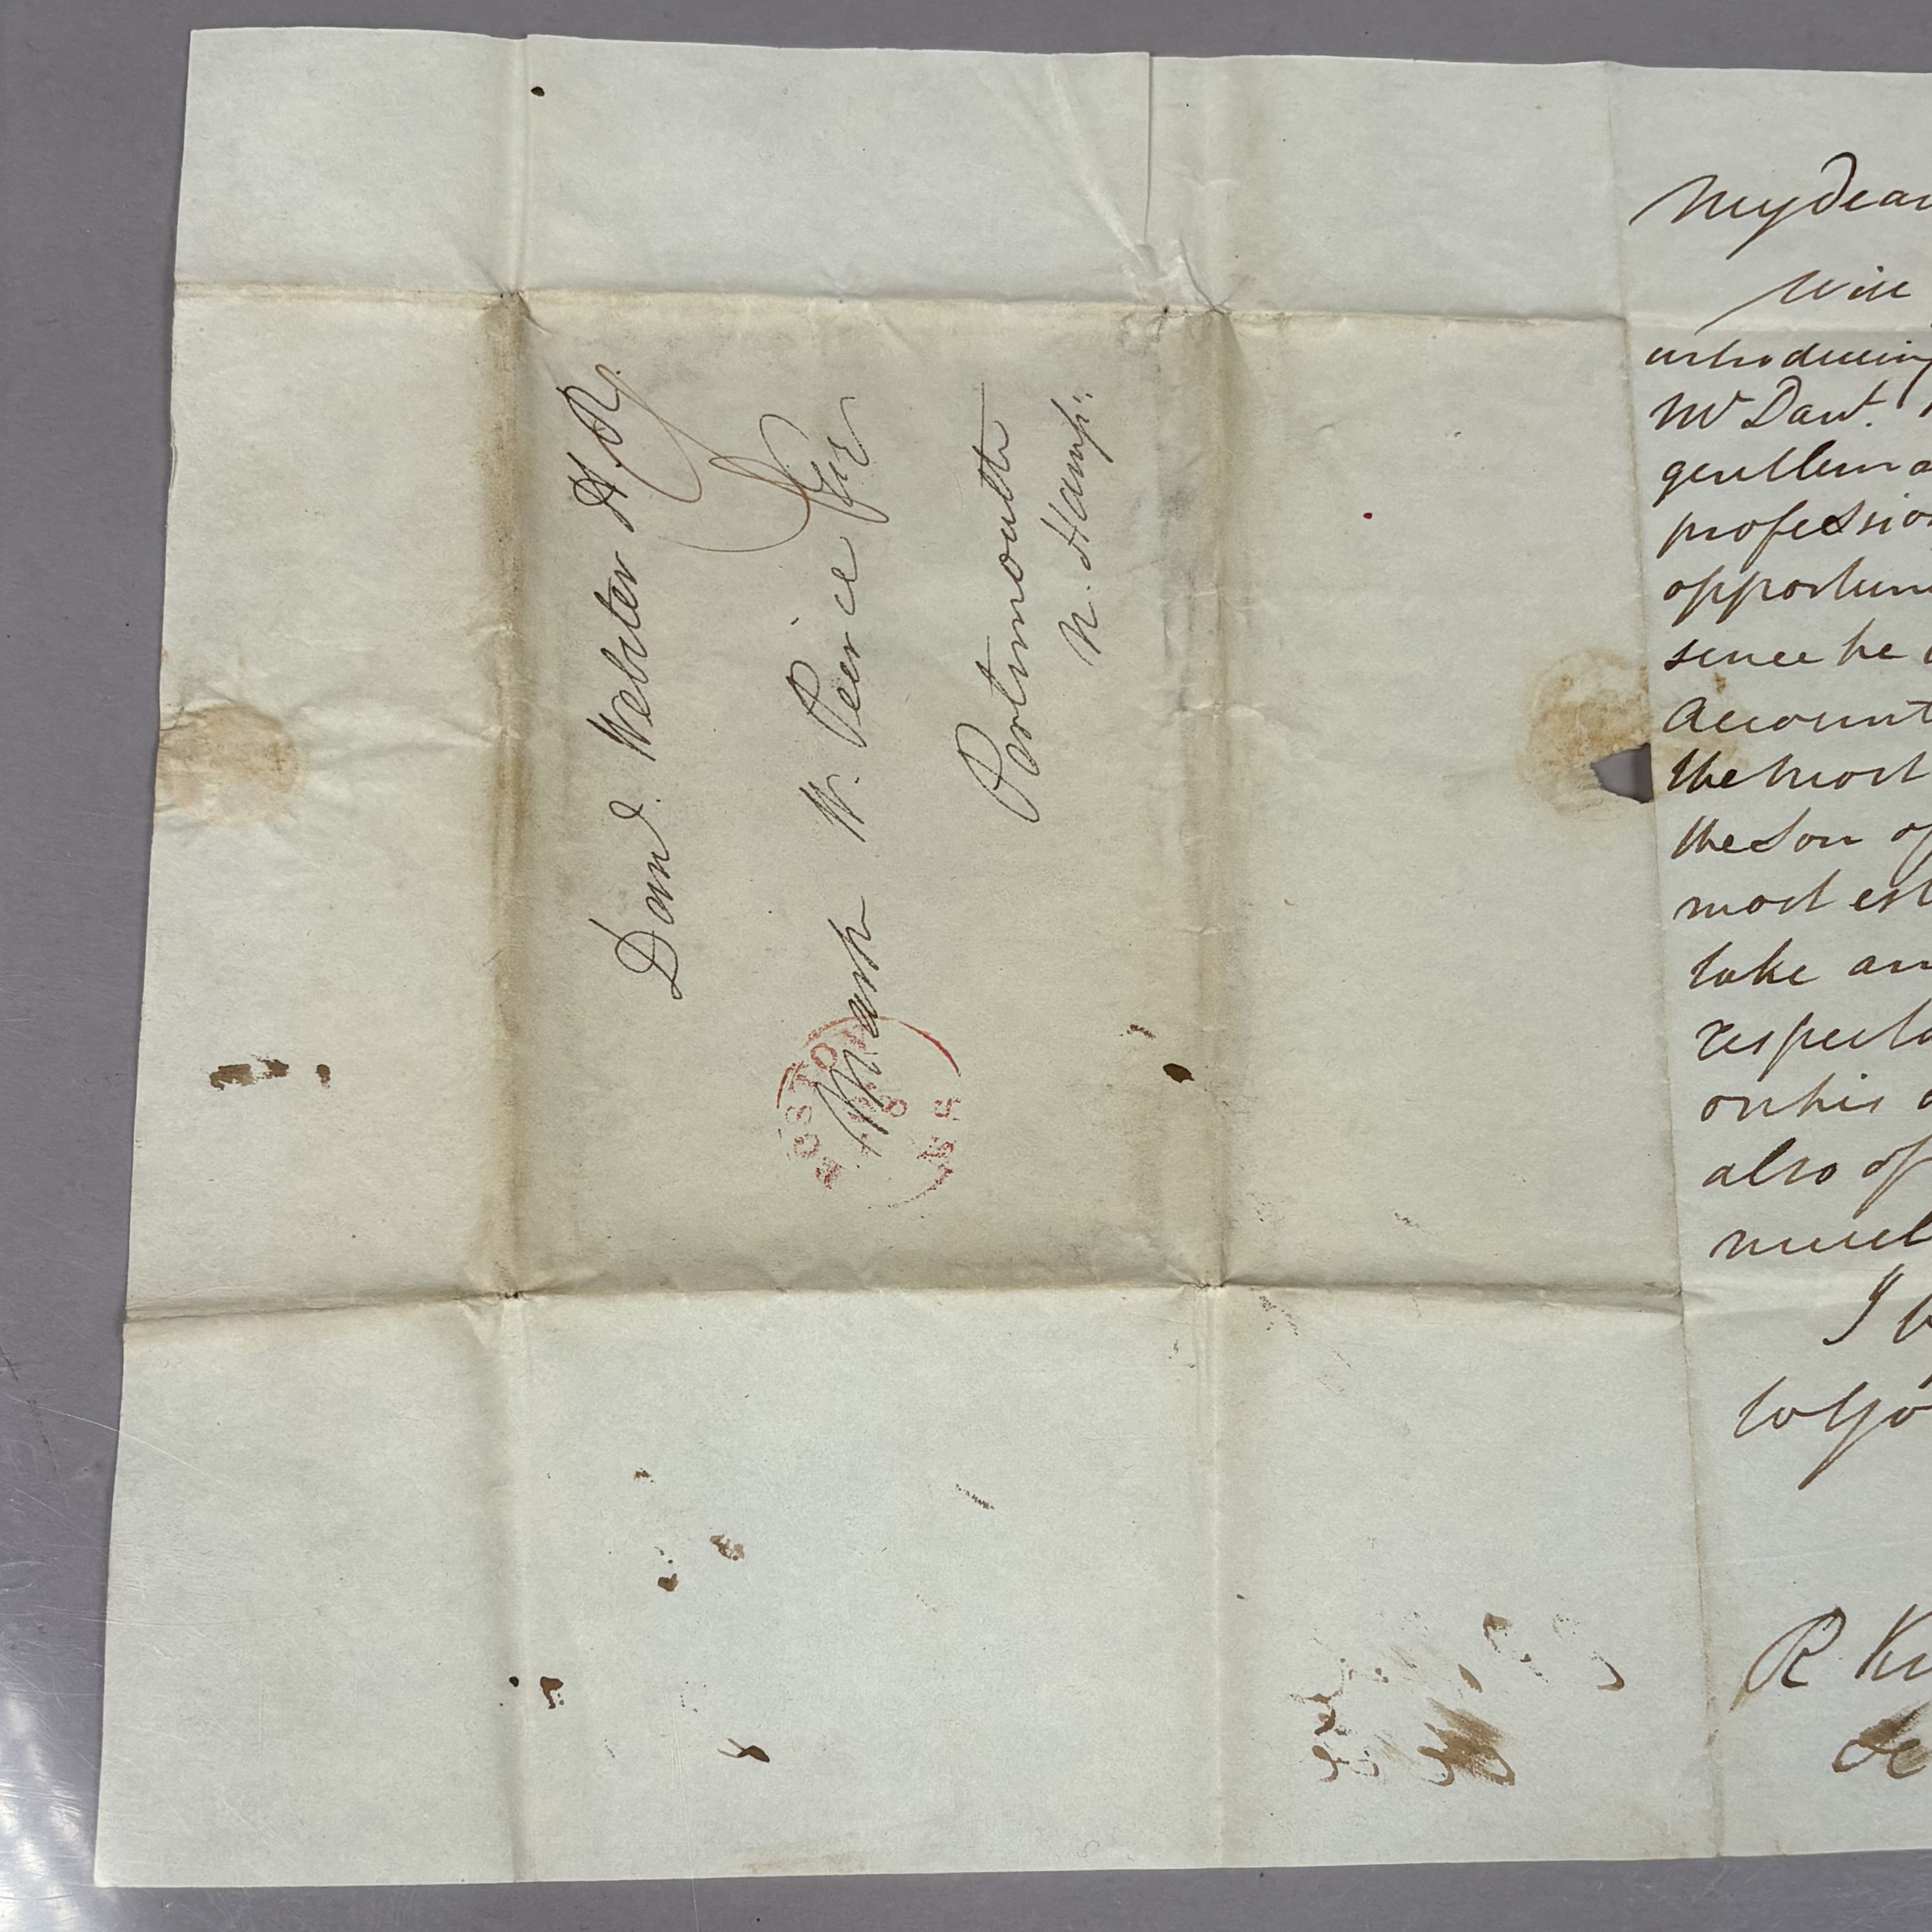 Danl. Webster H.R
Mark W. Peirce Esqr
Portsmouth
N. Hamp:
BOSTON
MS
My Dear
will
introducing
Mr Danl.
gentlema
profession
opportun
since he
Account
the most
the Son of
most est
take an
respecta
on his
also of
much
I
to yo
R